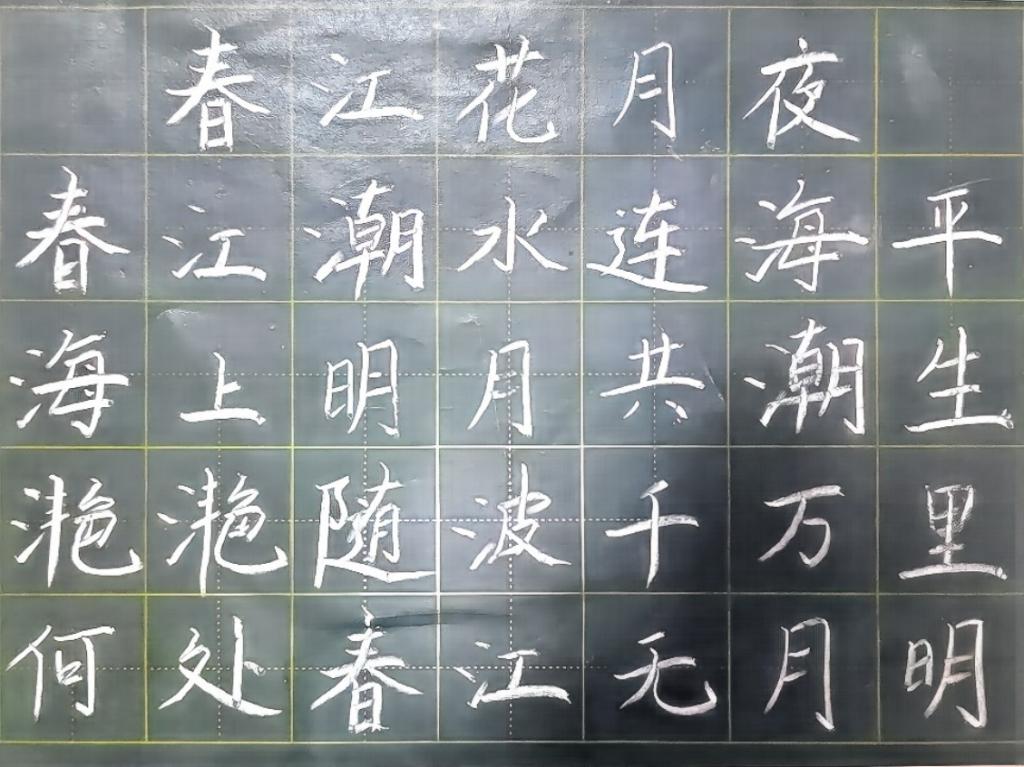 春江花月夜
春江潮水连海平
海上明月共潮生
滟滟随波千万里
何处春江无月明